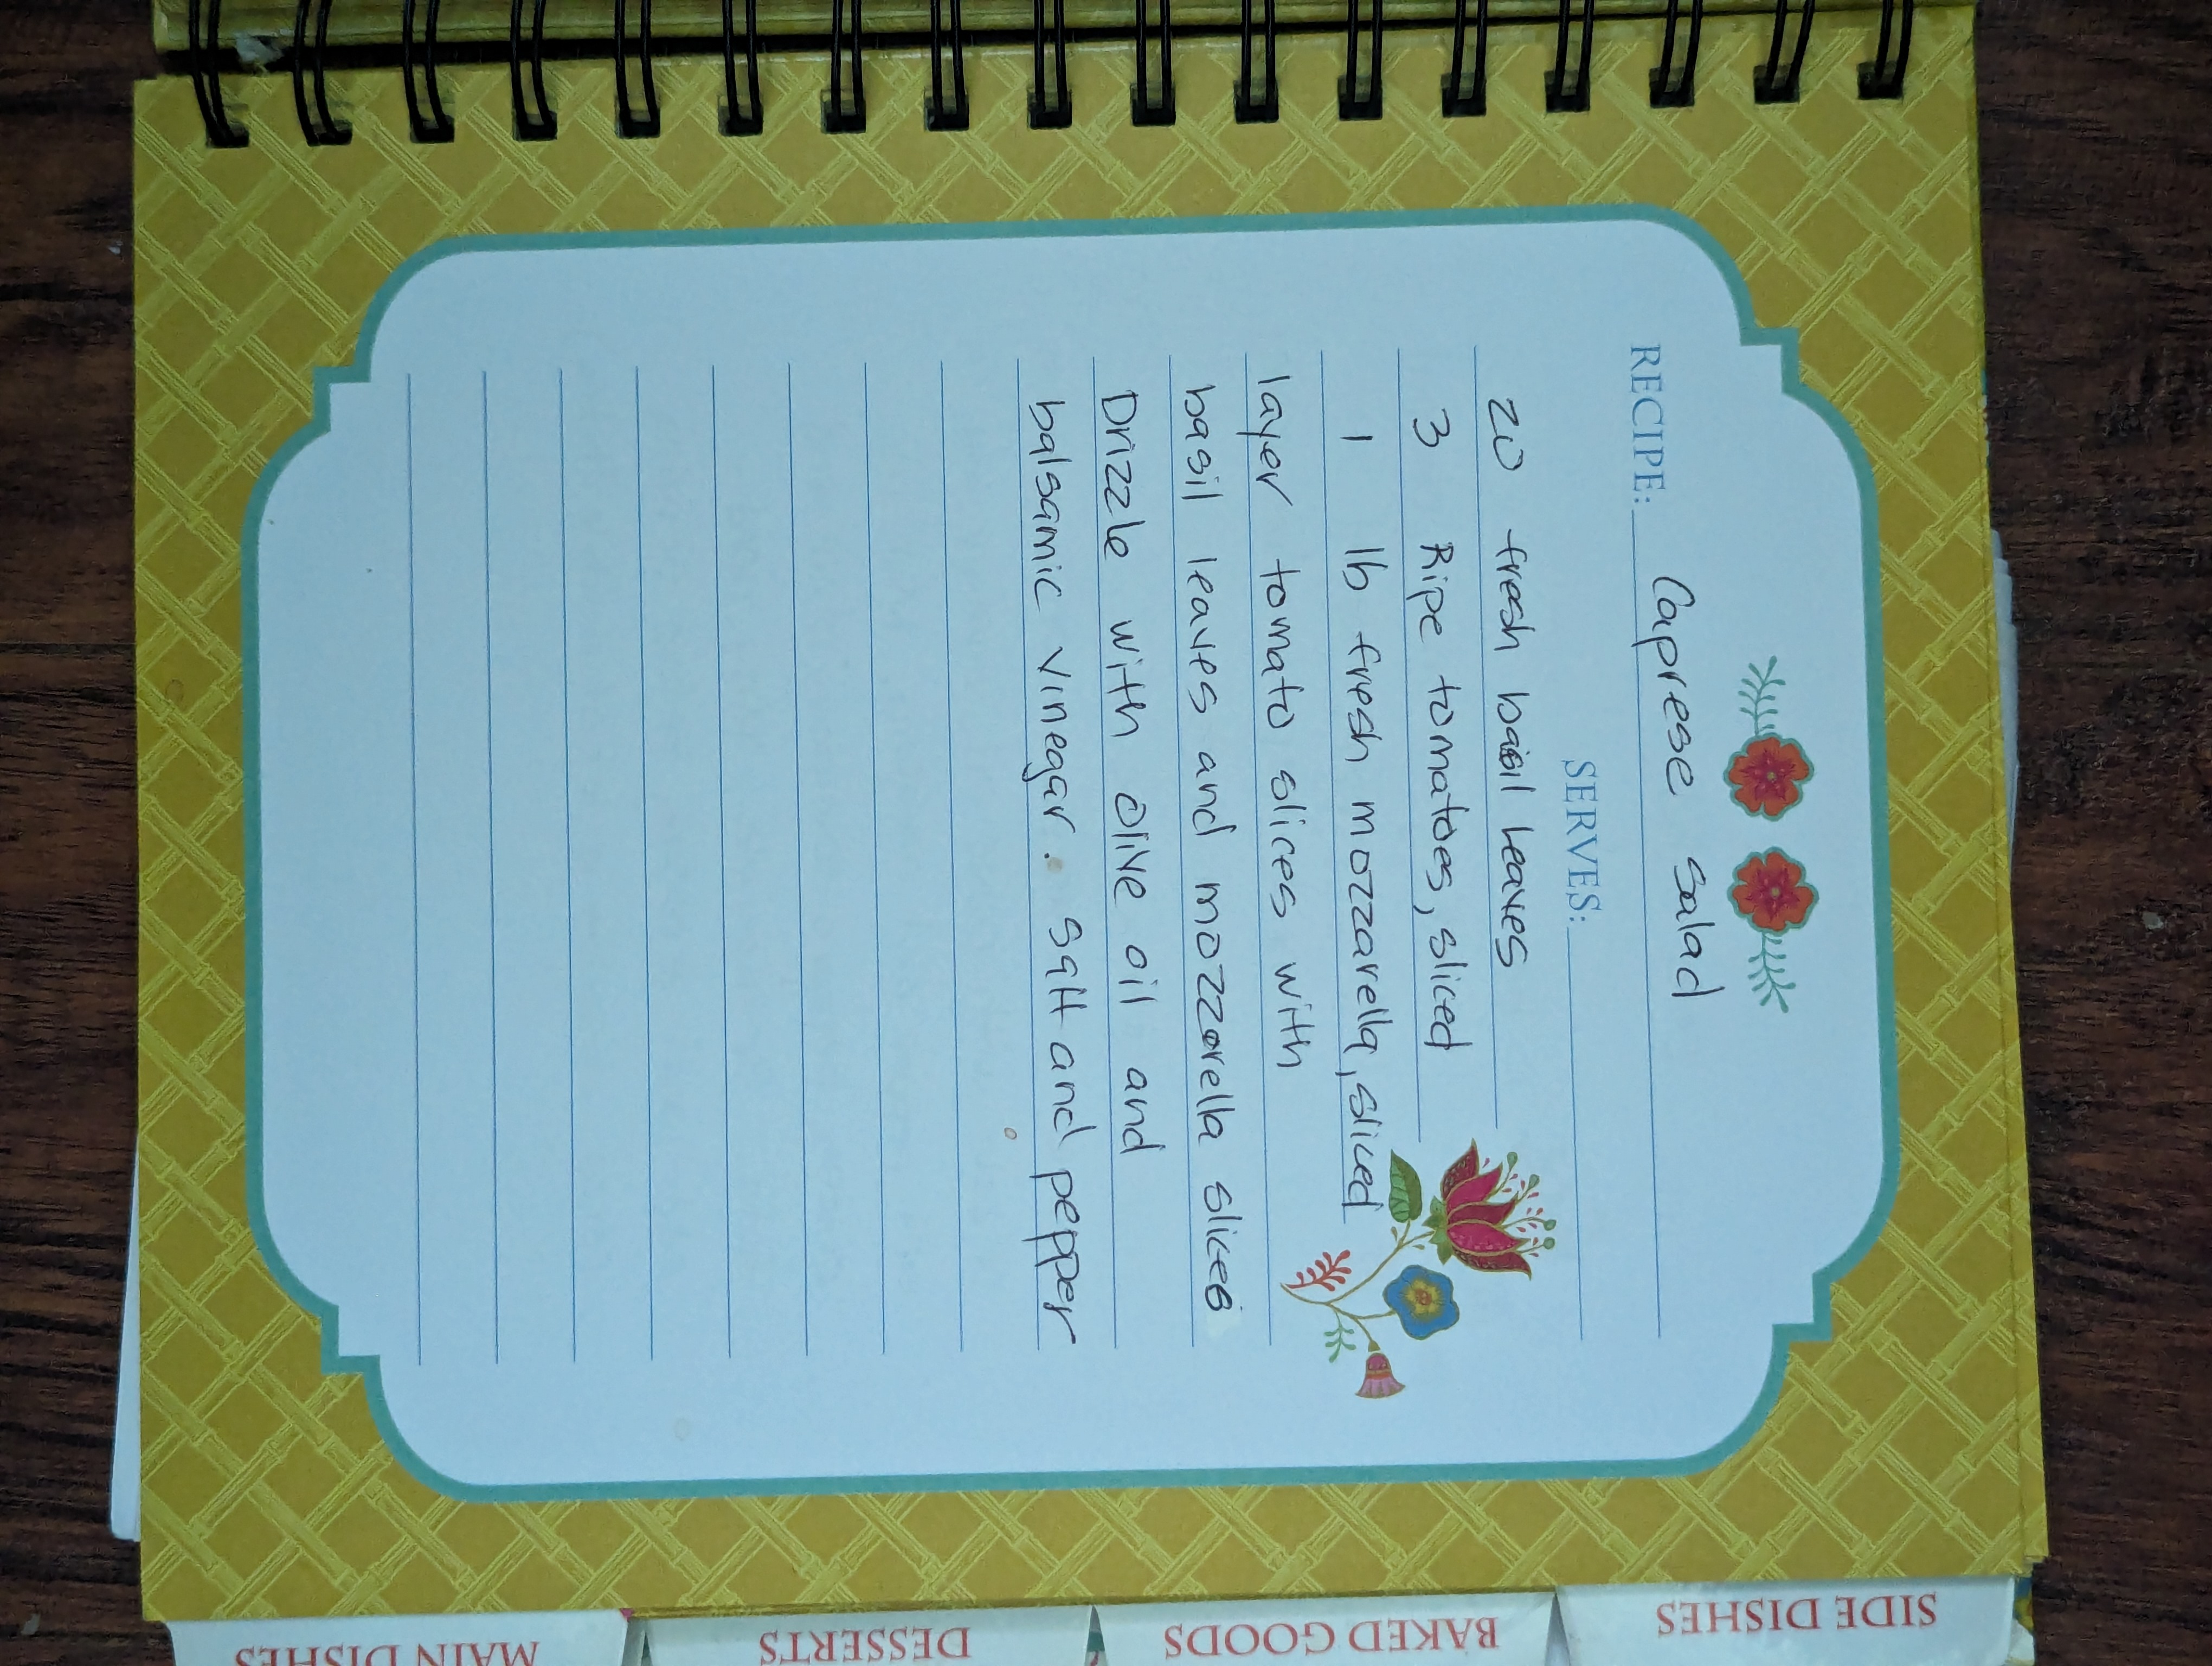 RECIPE: Caprese Salad
SERVES:
20 fresh basil leaves
3 Ripe tomatoes, sliced
1 lb fresh mozzarella, sliced
layer tomato slices with
basil leaves and mozzerella slices
Drizzle with olive oil and
balsamic vinegar. Salt and pepper
SIDE DISHES
BAKED GOODS
DESSERTS
MAIN DISHES